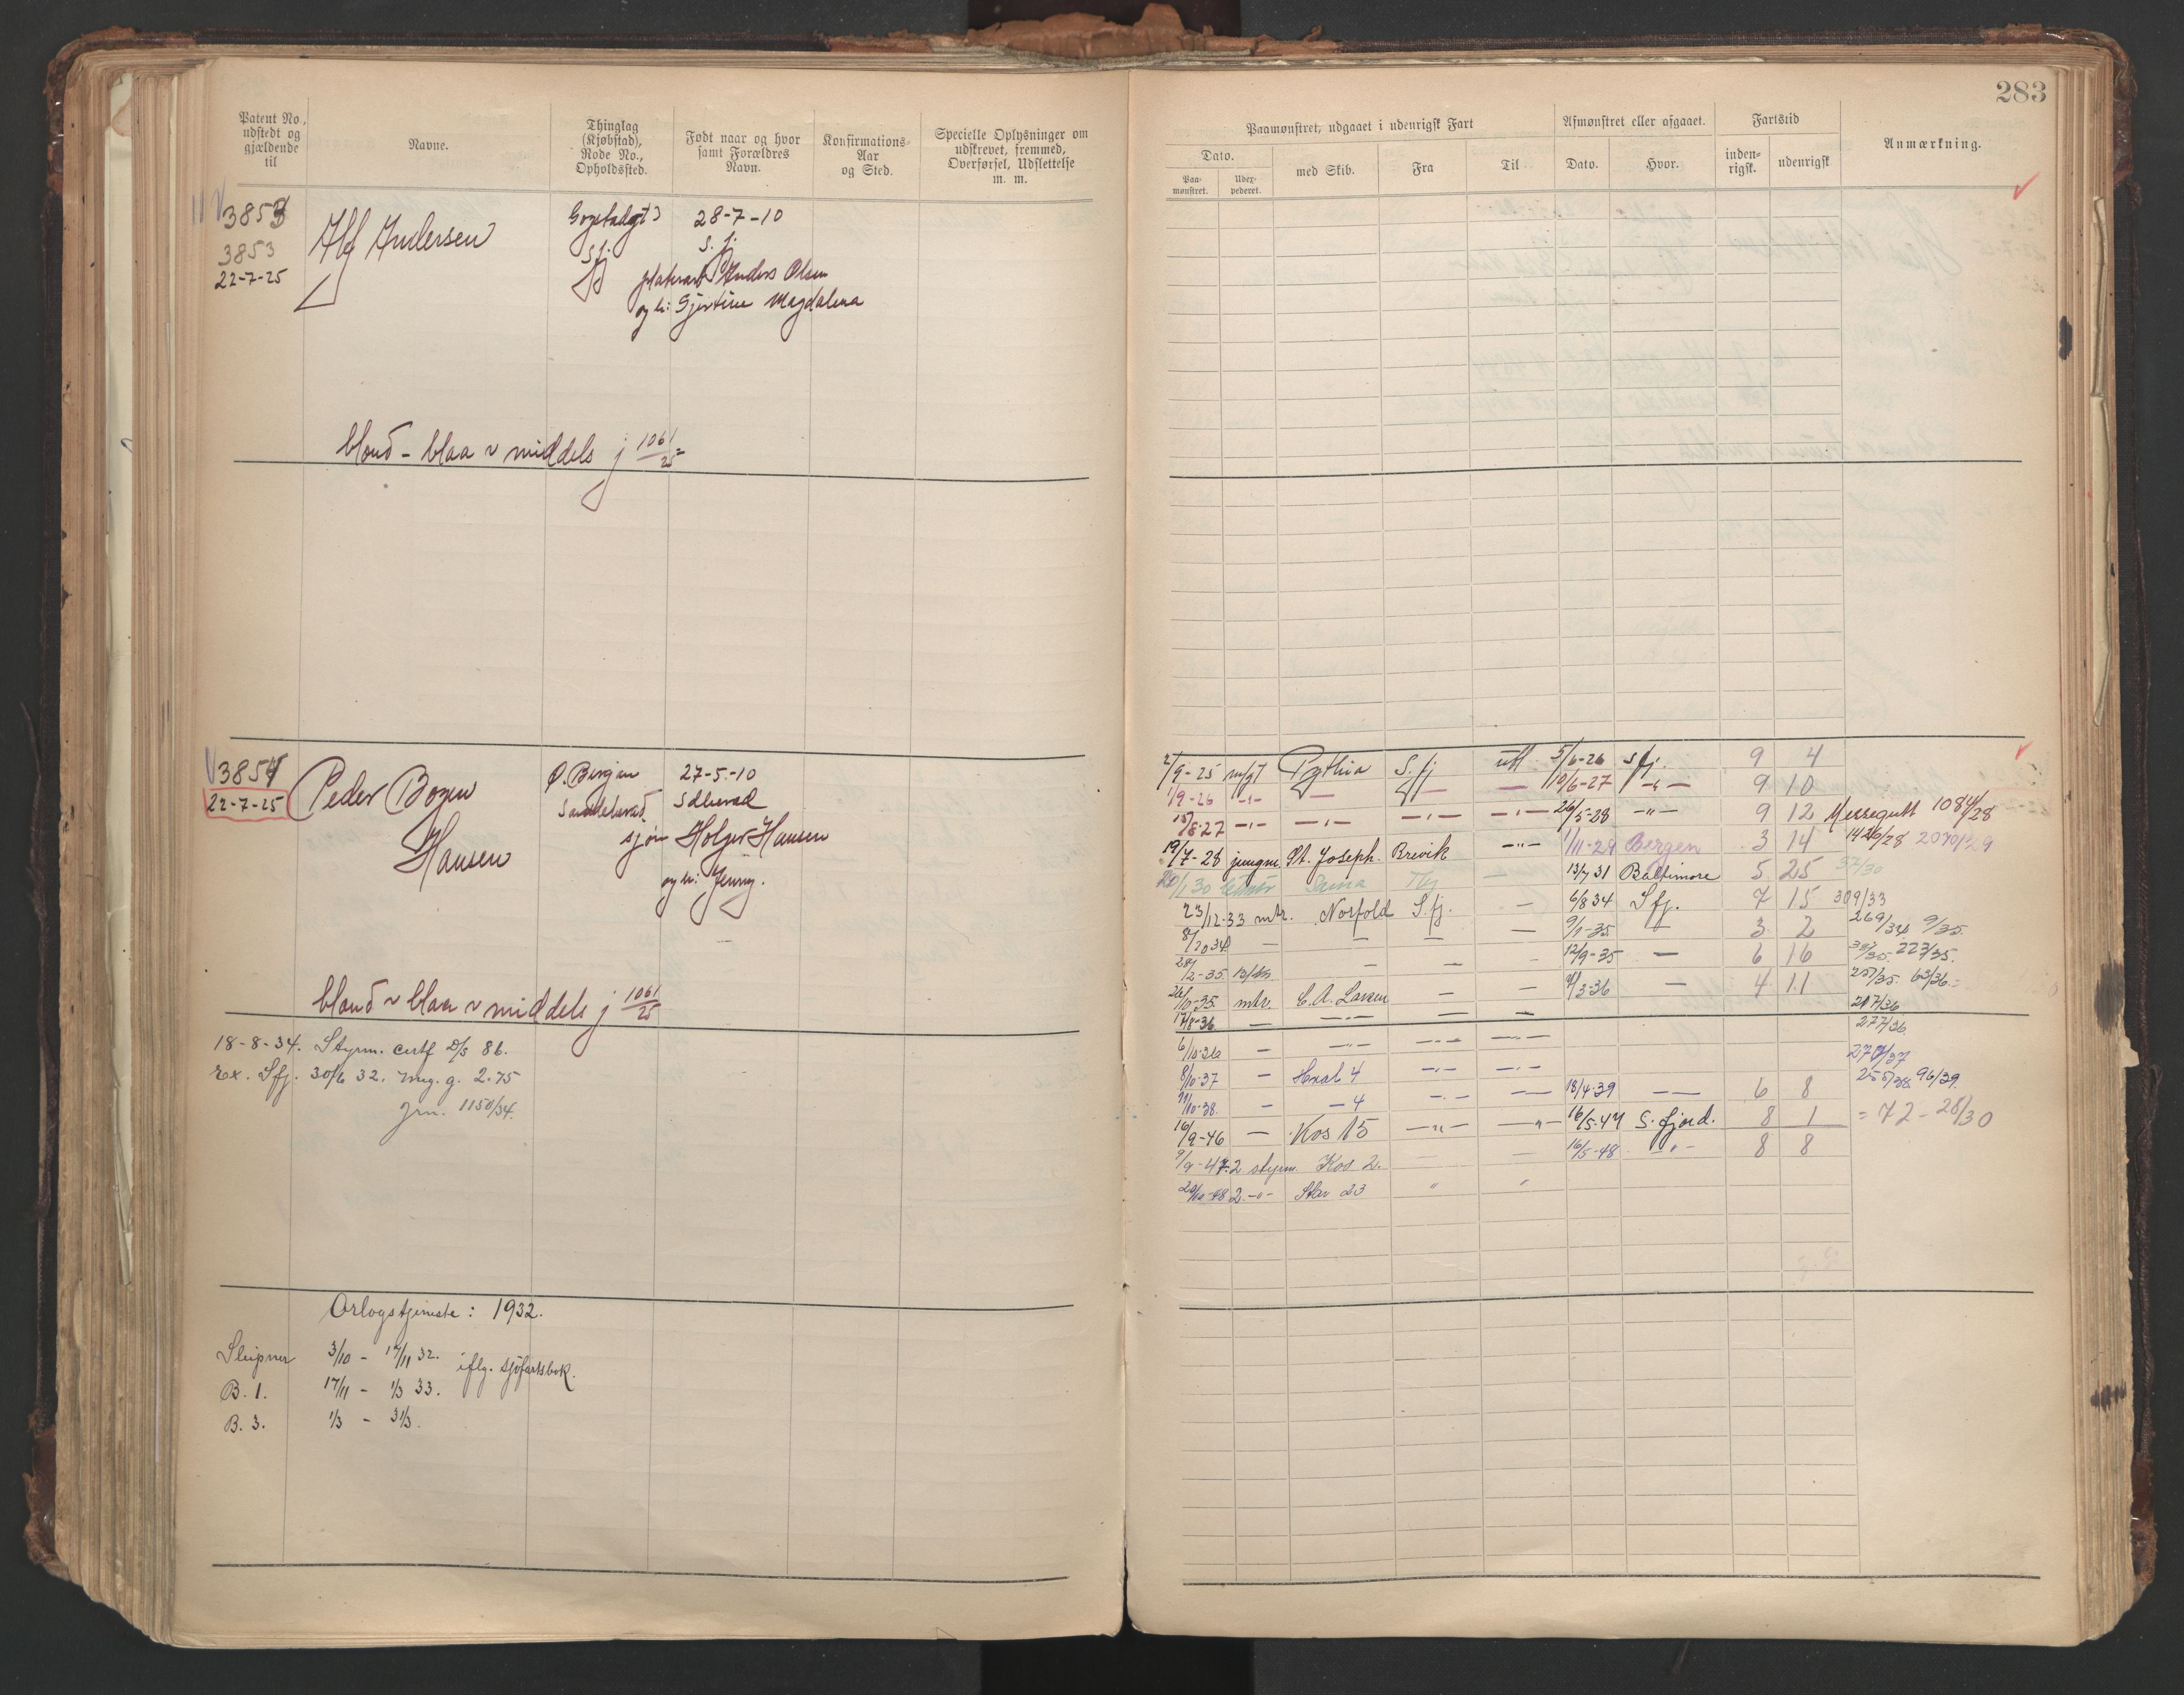 283
Patent No., udstedt og gjældende til
Navne.
Thinglag (Kjøbstad), Rode No., Opholdssted.
Født naar og hvor samt Forældres Navn.
Konfirmations-Aar og Sted.
Specielle Oplysninger om udskrevet, fremmed, Overførsel, Udslettelse m. m.
Paamønstret, udgaaet i udenrigsk Fart
Afmønstret eller afgaaet.
Fartstid
Anmærkning.
Dato.
med Skib.
Fra
Til
Dato.
Hvor.
inden-rigsk.
udenrigsk
Paa-mønstret.
Udex-pederet.
3853
3853
22-7-25
Alf Andersen
S. fj.
28-7-10
S. fj.
Anders Olsen
og h: Gjertine Magdalena
blond - blaa v middels j 1061/25
3854
22-7-25
Peder Bogen Hansen
Ø. Bergan
27-5-10
sjøm Holger Hansen
og h: Jenny.
blond v blaa v middels j 1061/25
18-8-34. Styrm. certf D/S 86.
Ex. Sfj. 30/6 32. mg. g. 2.75
Jrn. 1150/34.
Orlogstjeneste: 1932.
Sleipner 3/10 - 17/11 32. iflg. sjøfartsbok.
B. 1. 17/11 - 1/3 33.
B. 3. 1/3 - 31/3.
2/9-25 m/gt Pythia S. fj utl 5/6-26 Sfj. 9 4
1/9-26 -"- — — — 10/6-27 -"- 9 10
15/8-27 -"- -"- -"- -"- 26/5-28 -"- 9 12 Messegutt 1084/28
19/7-28 jungm. St. Joseph. Brevik -"- 1/11-29 Bergen 3 14 1426/28 2070/29
20/1 30 Tbg — 13/7 31 Baltimore 5 25 37/30
23/12-33 mtr. Norfold S. fj. — 6/8 34 Sfj. 7 15 309/33
8/10 34 — — — — 9/1-35 — 3 2 269/34 9/35.
28/2-35 — — — 12/9-35 — 6 16 223/35.
26/10-35 mtr. C. A. Larsen — — 4/3-36 — 4 11 257/35 63/36
17/8-36 — -"- — — 217/36
6/10-36 — -"- -"- -"- 277/36
8/10-37 — Hval 4 -"- — 270/37
11/10-38. — — 4 -"- — 18/4-39 — 6 8 255/38 96/39.
16/9-46 — Kos 15 -"- -"- 16/5-47 S. fjord. 8 1 = 72 - 28/30
9/9-47. 2 styrm Kos 2. — — 16/5-48. -"- 8 8
20/10-48 2. -"- Star 23 " "